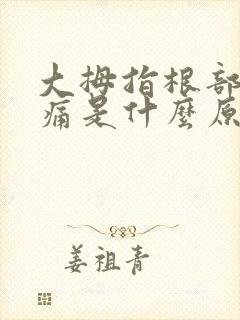 大拇指根部
痛是什麼原
姜祖青